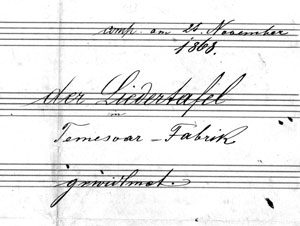 comp. am 21. November
1868.
der Liedertafel
in
Temesvar - Fabrik
gewidmet.